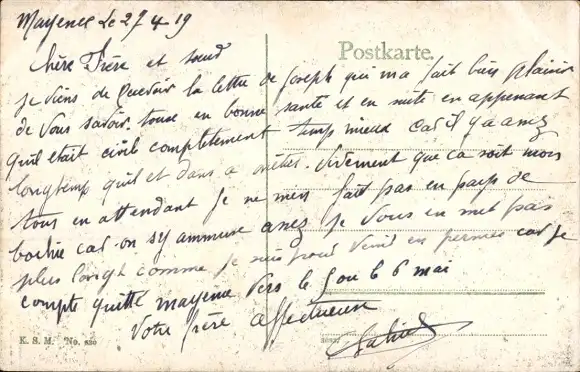 Mayence Le 27-4-19
Postkarte.
Chère Frère et soeur
je viens de recevoir la lettre de joseph qui ma fait bien plaisir
de vous savoir tous en bonne santé et en suite en apprenant
quil etait civile completement temp mieux car il y a assez
longtemp quil et dans a métier. vivement que ca soit mon
tour en attendant je ne men fait pas en pays de
bochie car on sy ammuse assez je vous en met pas
plus longt comme je suis pour venir en permes car je
compte quitte mayence vers le 5 ou le 6 mai
Votre frère affectueux
K. S. M. No. 830